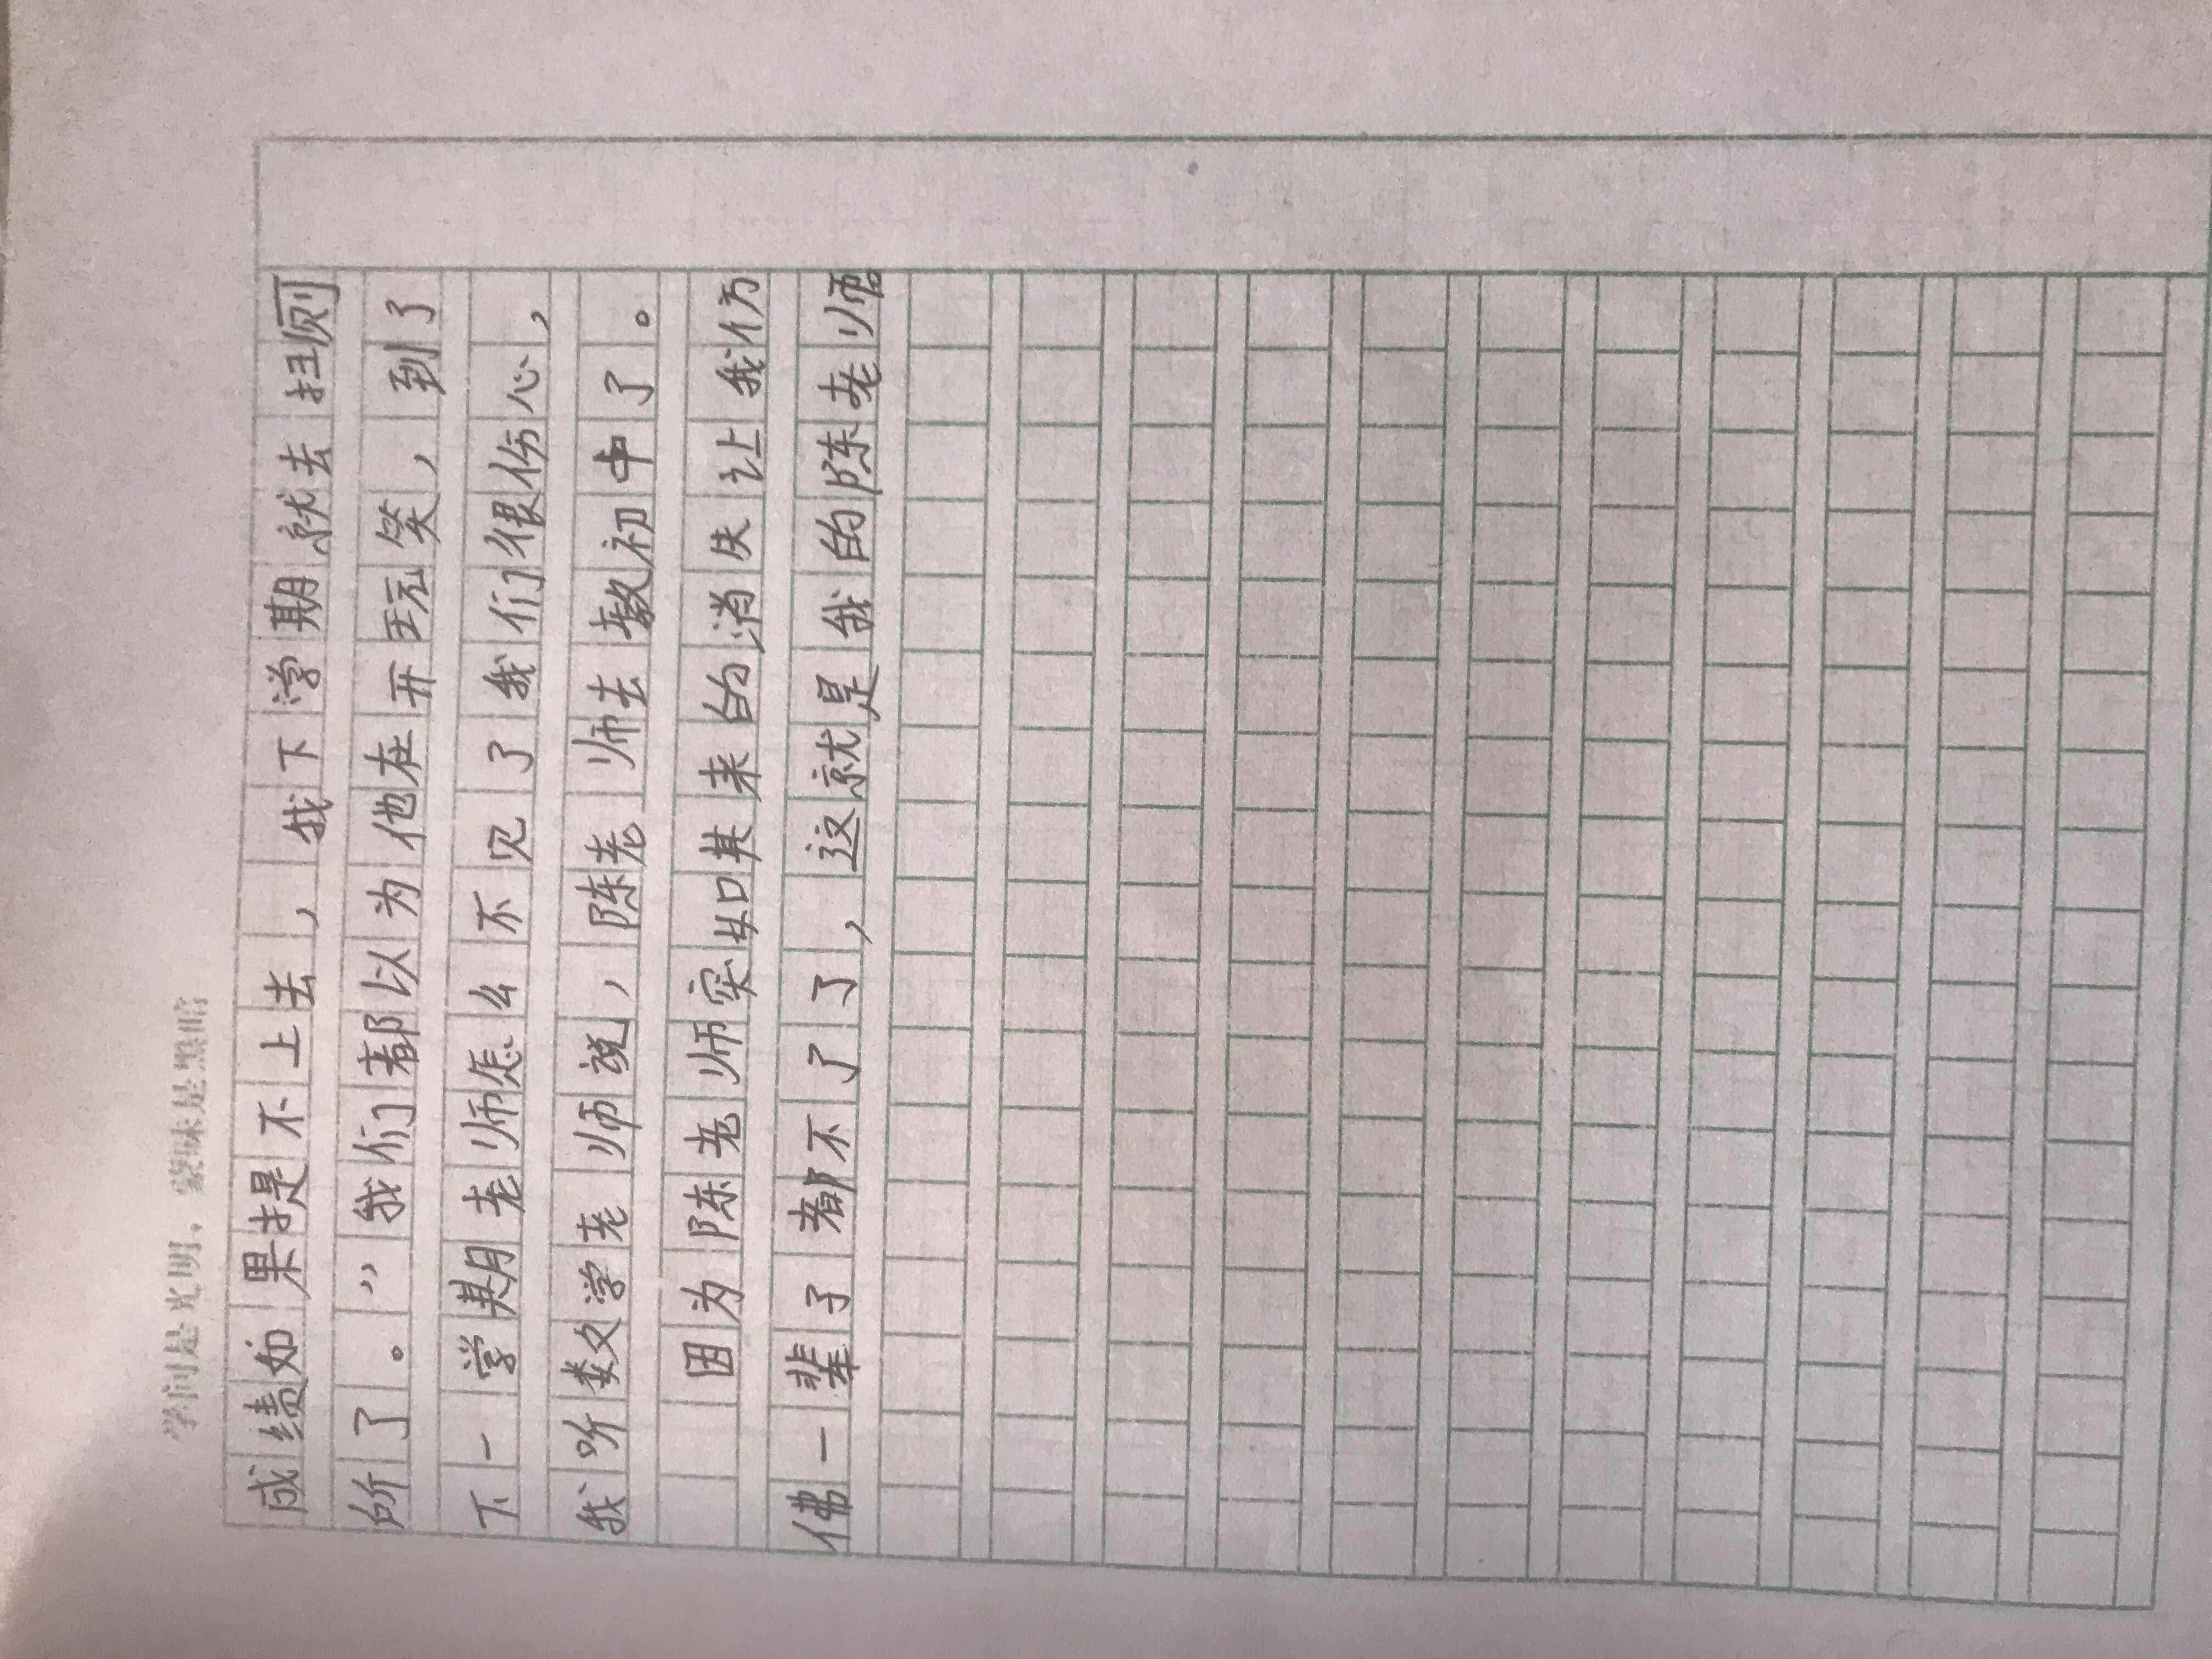 学问是光明，蒙昧是黑暗
成绩如果提不上去，我下学期就去扫厕
所了。”我们都以为他在开玩笑，到了
下一学期老师怎么不见了我们很伤心，
我听数学老师说，陈老师去教初中了。
因为陈老师突如其来的消失让我仿
佛一辈子都不了了，这就是我的陈老师